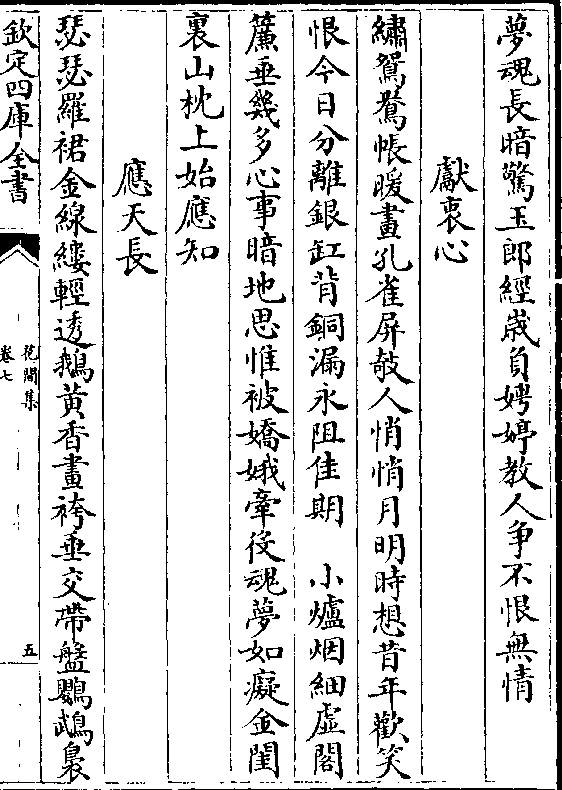 夢魂長暗驚玉郎經歲負娉婷教人爭不恨無情
獻衷心
繡鴛鴦帳暖畫孔雀屏攲人悄悄月明時想昔年歡笑
恨今日分離銀缸背銅漏永阻佳期　小爐烟細虛閣
簾垂幾多心事暗地思惟被嬌娥牽役魂夢如癡金閨
裏山枕上始應知
應天長
瑟瑟羅裙金線縷輕透鵝黃香畫袴垂交帶盤鸚鵡裊
欽定四庫全書
花間集
卷七
五